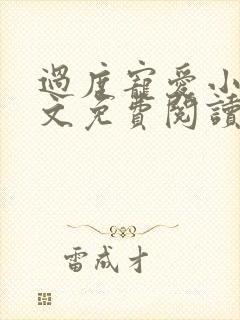 過度寵愛小
文免費閱讀
雷成才